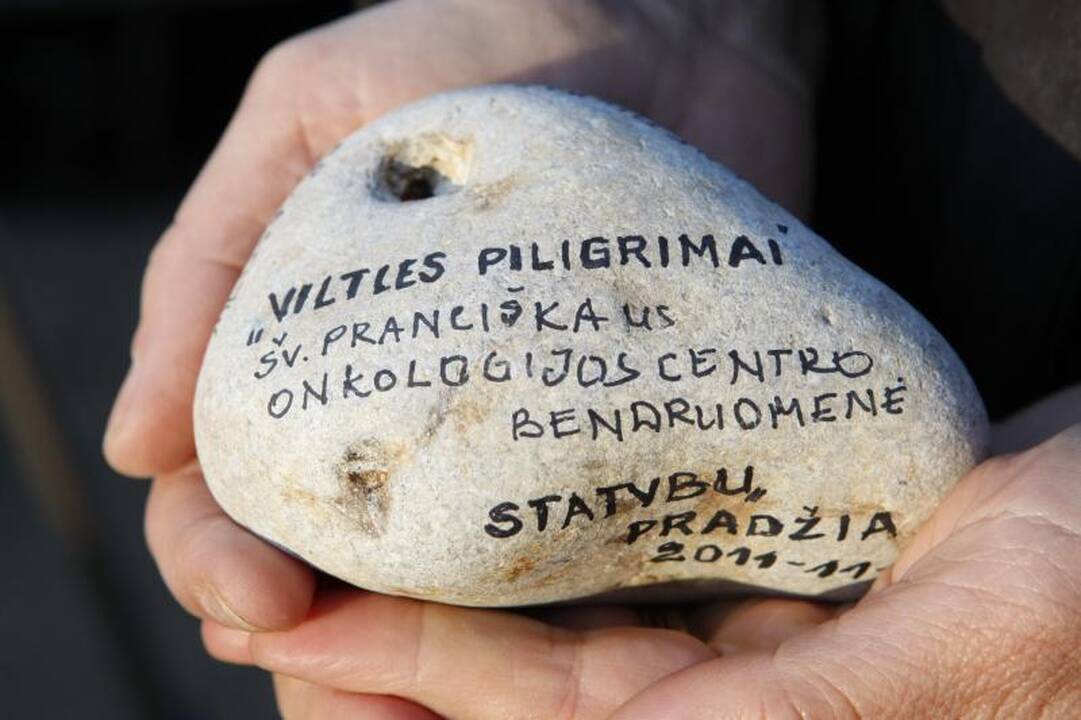 „VILTIES PILIGRIMAI"
ŠV. PRANCIŠKAUS
ONKOLOGIJOS CENTRO
BENDRUOMENĖ
STATYBŲ
PRADŽIA
2011-11-